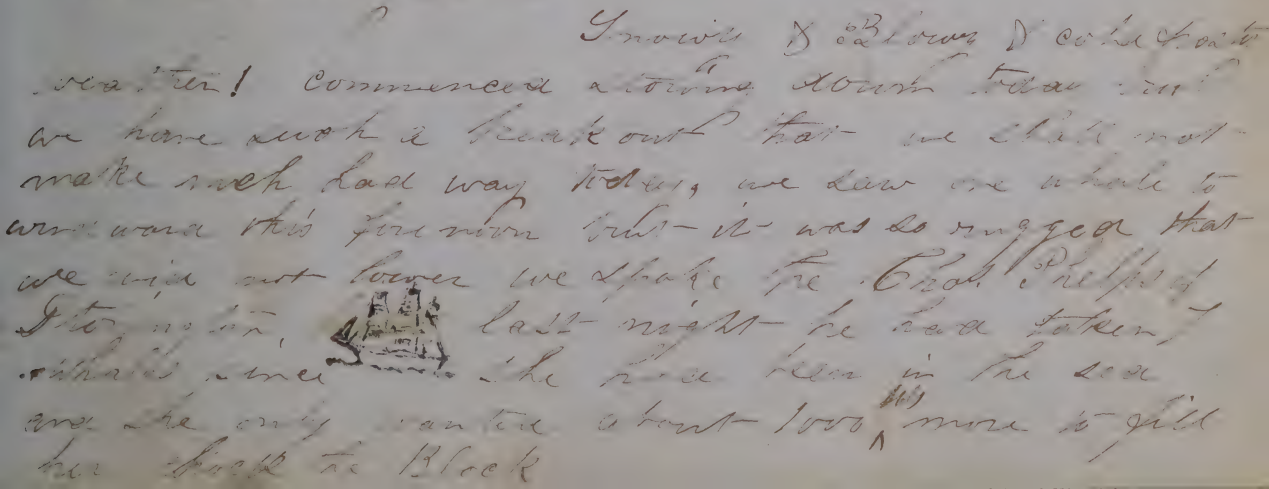 Snowie & Blowy & 
weather! commenced a stowing down today but
we have such a break out that we shall not
make much had way today, we saw one whale to
windward this fore noon but it was so rugged that
we did not lower we spoke the Chas Phelps of
last night he had taken 7
whales since she had been in the sea
and she only wanted about 1000 bbls more to fill
her chock to Block